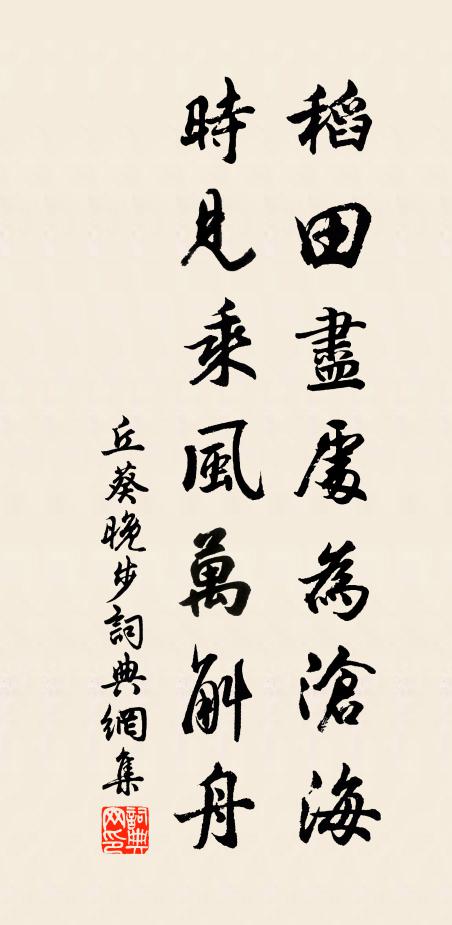 稻田盡處為滄海
時見乘風萬斛舟
丘葵晚步詞典網集
詞典
网印